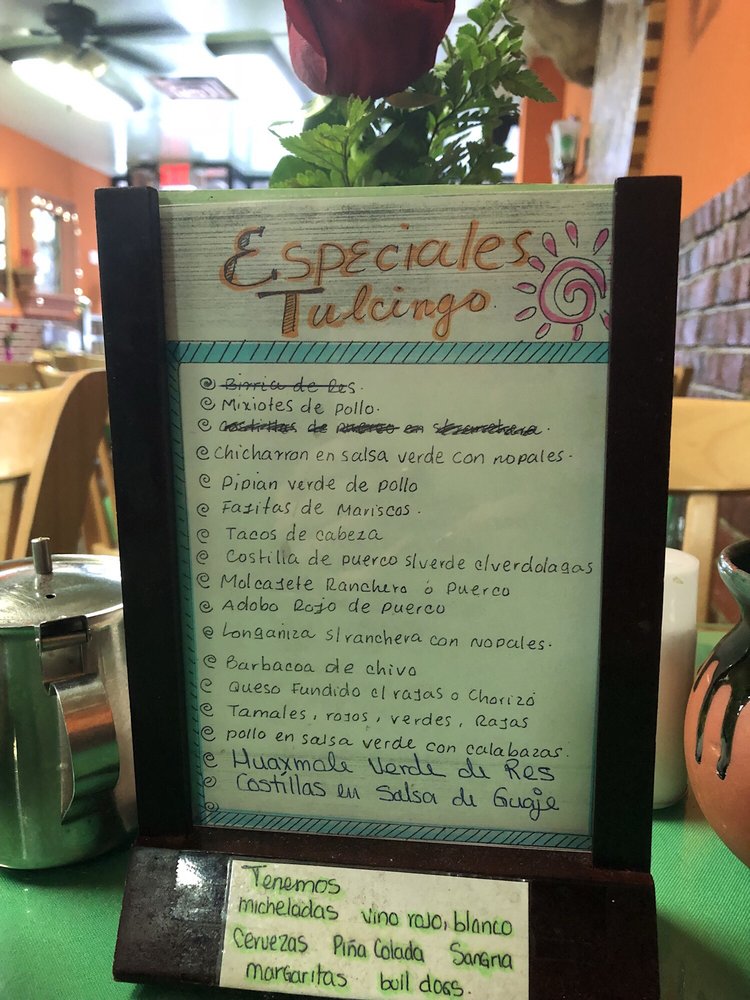 Especiales
Tulcingo
Birria de Res.
Mixiotes de pollo.
Costillas de puerco en
Chicharron en salsa verde con nopales.
Pipian verde de pollo
Fajitas de Mariscos.
Tacos de cabeza
Costilla de puerco s/verde c/verdolagas
Molcajete Ranchero ó Puerco
Adobo Rojo de puerco
Longaniza s/ranchera con nopales.
Barbacoa de chivo
Queso Fundido c/ rajas o Chorizó
Tamales, rojos, verdes, Rajas
pollo en salsa verde con calabazas.
Huaxmole Verde de Res
Costillas en Salsa de Guaje
Tenemos
micheladas vino rojo, blanco
Cervezas Piña Colada Sangria
margaritas bull dogs.